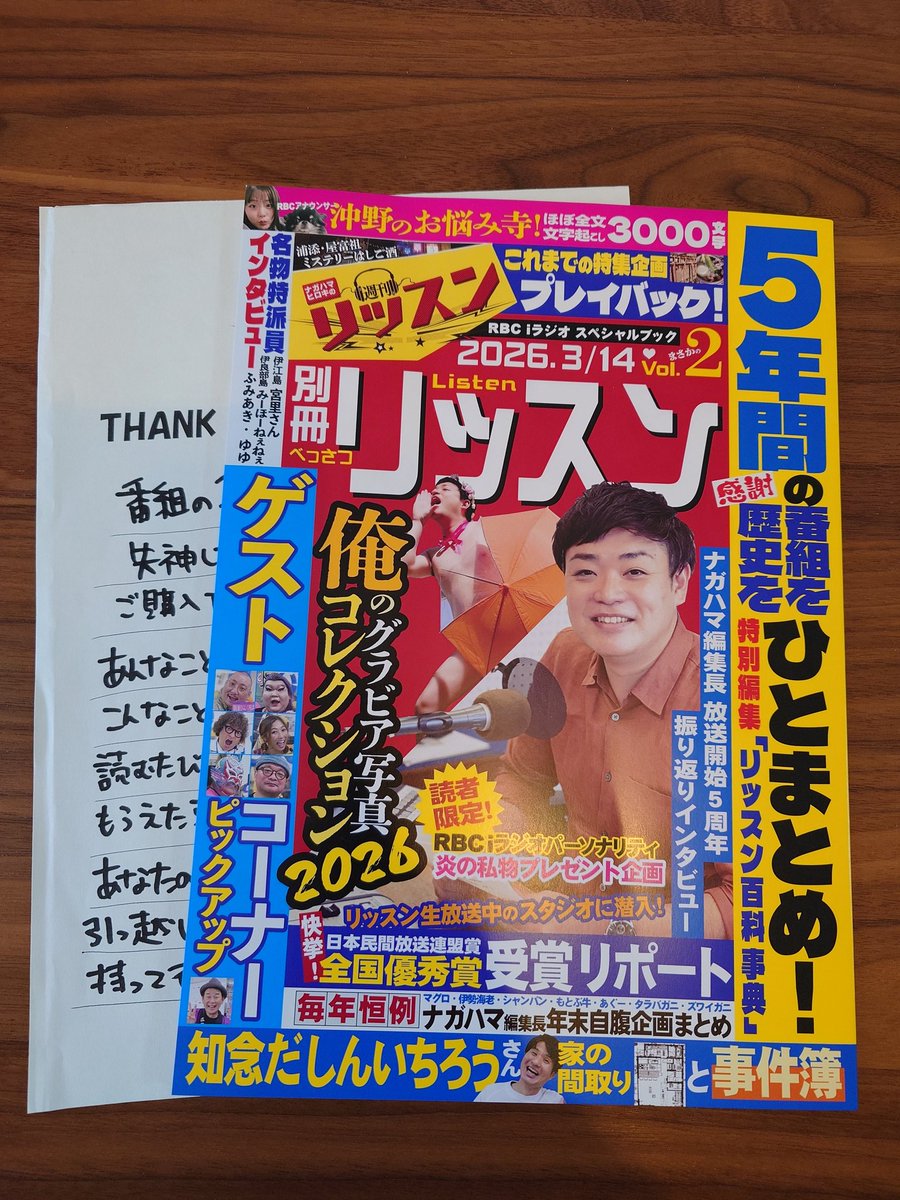 RBCアナウンサー
沖野のお悩み寺!
ほぼ全文
文字起こし
3000文字
名物特派員
インタビュー
伊江島 宮里さん
伊良部島 みーほーねぇねぇ
ふみあき・ゆゆ
浦添・屋富祖
ミステリーはしご酒
これまでの特集企画
プレイバック!
ナガハマ
ヒロキの
週刊
リッスン
RBC iラジオ スペシャルブック
2026.3/14♥
まさかの
Vol.2
別冊
べっさつ
Listen
リッスン
5年間の番組を
感謝
歴史を
ひとまとめ!
特別編集「リッスン百科事典」
ゲスト
コーナー
ピックアップ
俺のグラビア写真
コレクション
2026
ナガハマ編集長 放送開始5周年
振り返りインタビュー
読者
限定!
RBCiラジオパーソナリティ
炎の私物プレゼント企画
リッスン生放送中のスタジオに潜入!
快挙!
日本民間放送連盟賞
全国優秀賞
受賞リポート
毎年恒例
マグロ・伊勢海老・シャンパン・もとぶ牛・あぐー・タラバガニ・ズワイガニ
ナガハマ編集長年末自腹企画まとめ
知念だしんいちろうさん
家の
間取り
と
事件簿
THANK
番組の
失神し
ご購入
あんなこと
こんなこと
読むたび
もうえた
あなたの
引っ越し
持って